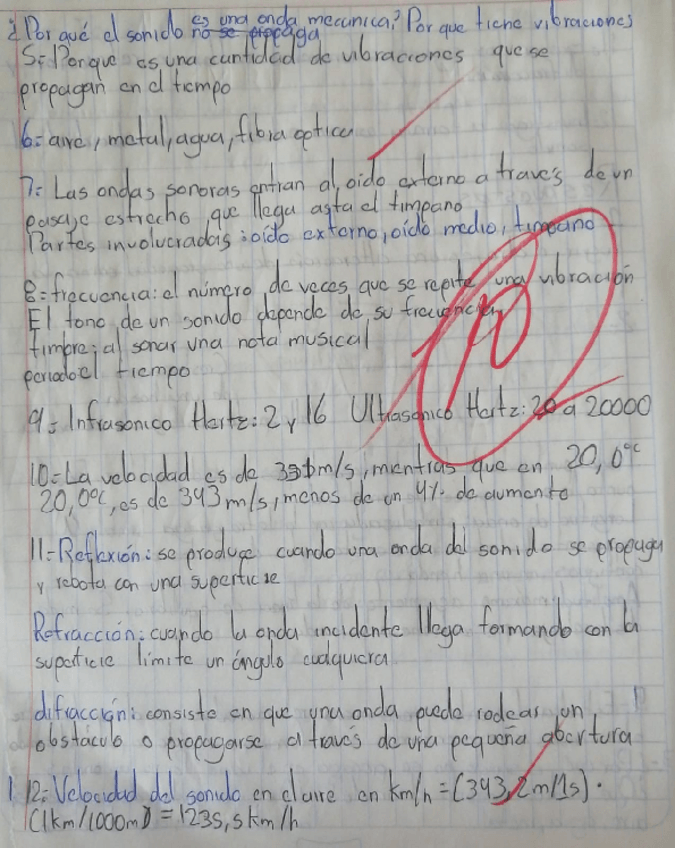 ¿Por qué el sonido es una onda mecanica? Por que tiene vibraciones
no se propaga
Si Porque es una cantidad de vibraciones que se
propagan en el tiempo
6= aire, metal, agua, fibra optica
7= Las ondas sonoras entran al oido externo a través de un
pasaje estrecho que llega asta el timpano
Partes involucradas: oido externo, oido medio, timpano
8= frecuencia: el número de veces que se repite una vibración
El tono de un sonido depende de su frecuencia
timbre: al sonar una nota musical
periodo: el tiempo
10
9= Infrasonico Hertz: 2 y 16 Ultrasonico Hertz: 20 a 20000
10= La velocidad es de 331m/s, mientras que en 20,0°C
20,0°C, es de 343 m/s, menos de un 4% de aumento
11= Reflexión: se produce cuando una onda del sonido se propaga
y rebota con una superficie
Refracción: cuando la onda incidente llega formando con la
superficie límite un ángulo cualquiera
difracción: consiste en que una onda puede rodear un
obstáculo o propagarse a través de una pequeña abertura
12= Velocidad del sonido en el aire en km/h = (343,2m/1s) ·
(1km/1000m) = 1235,5 km/h